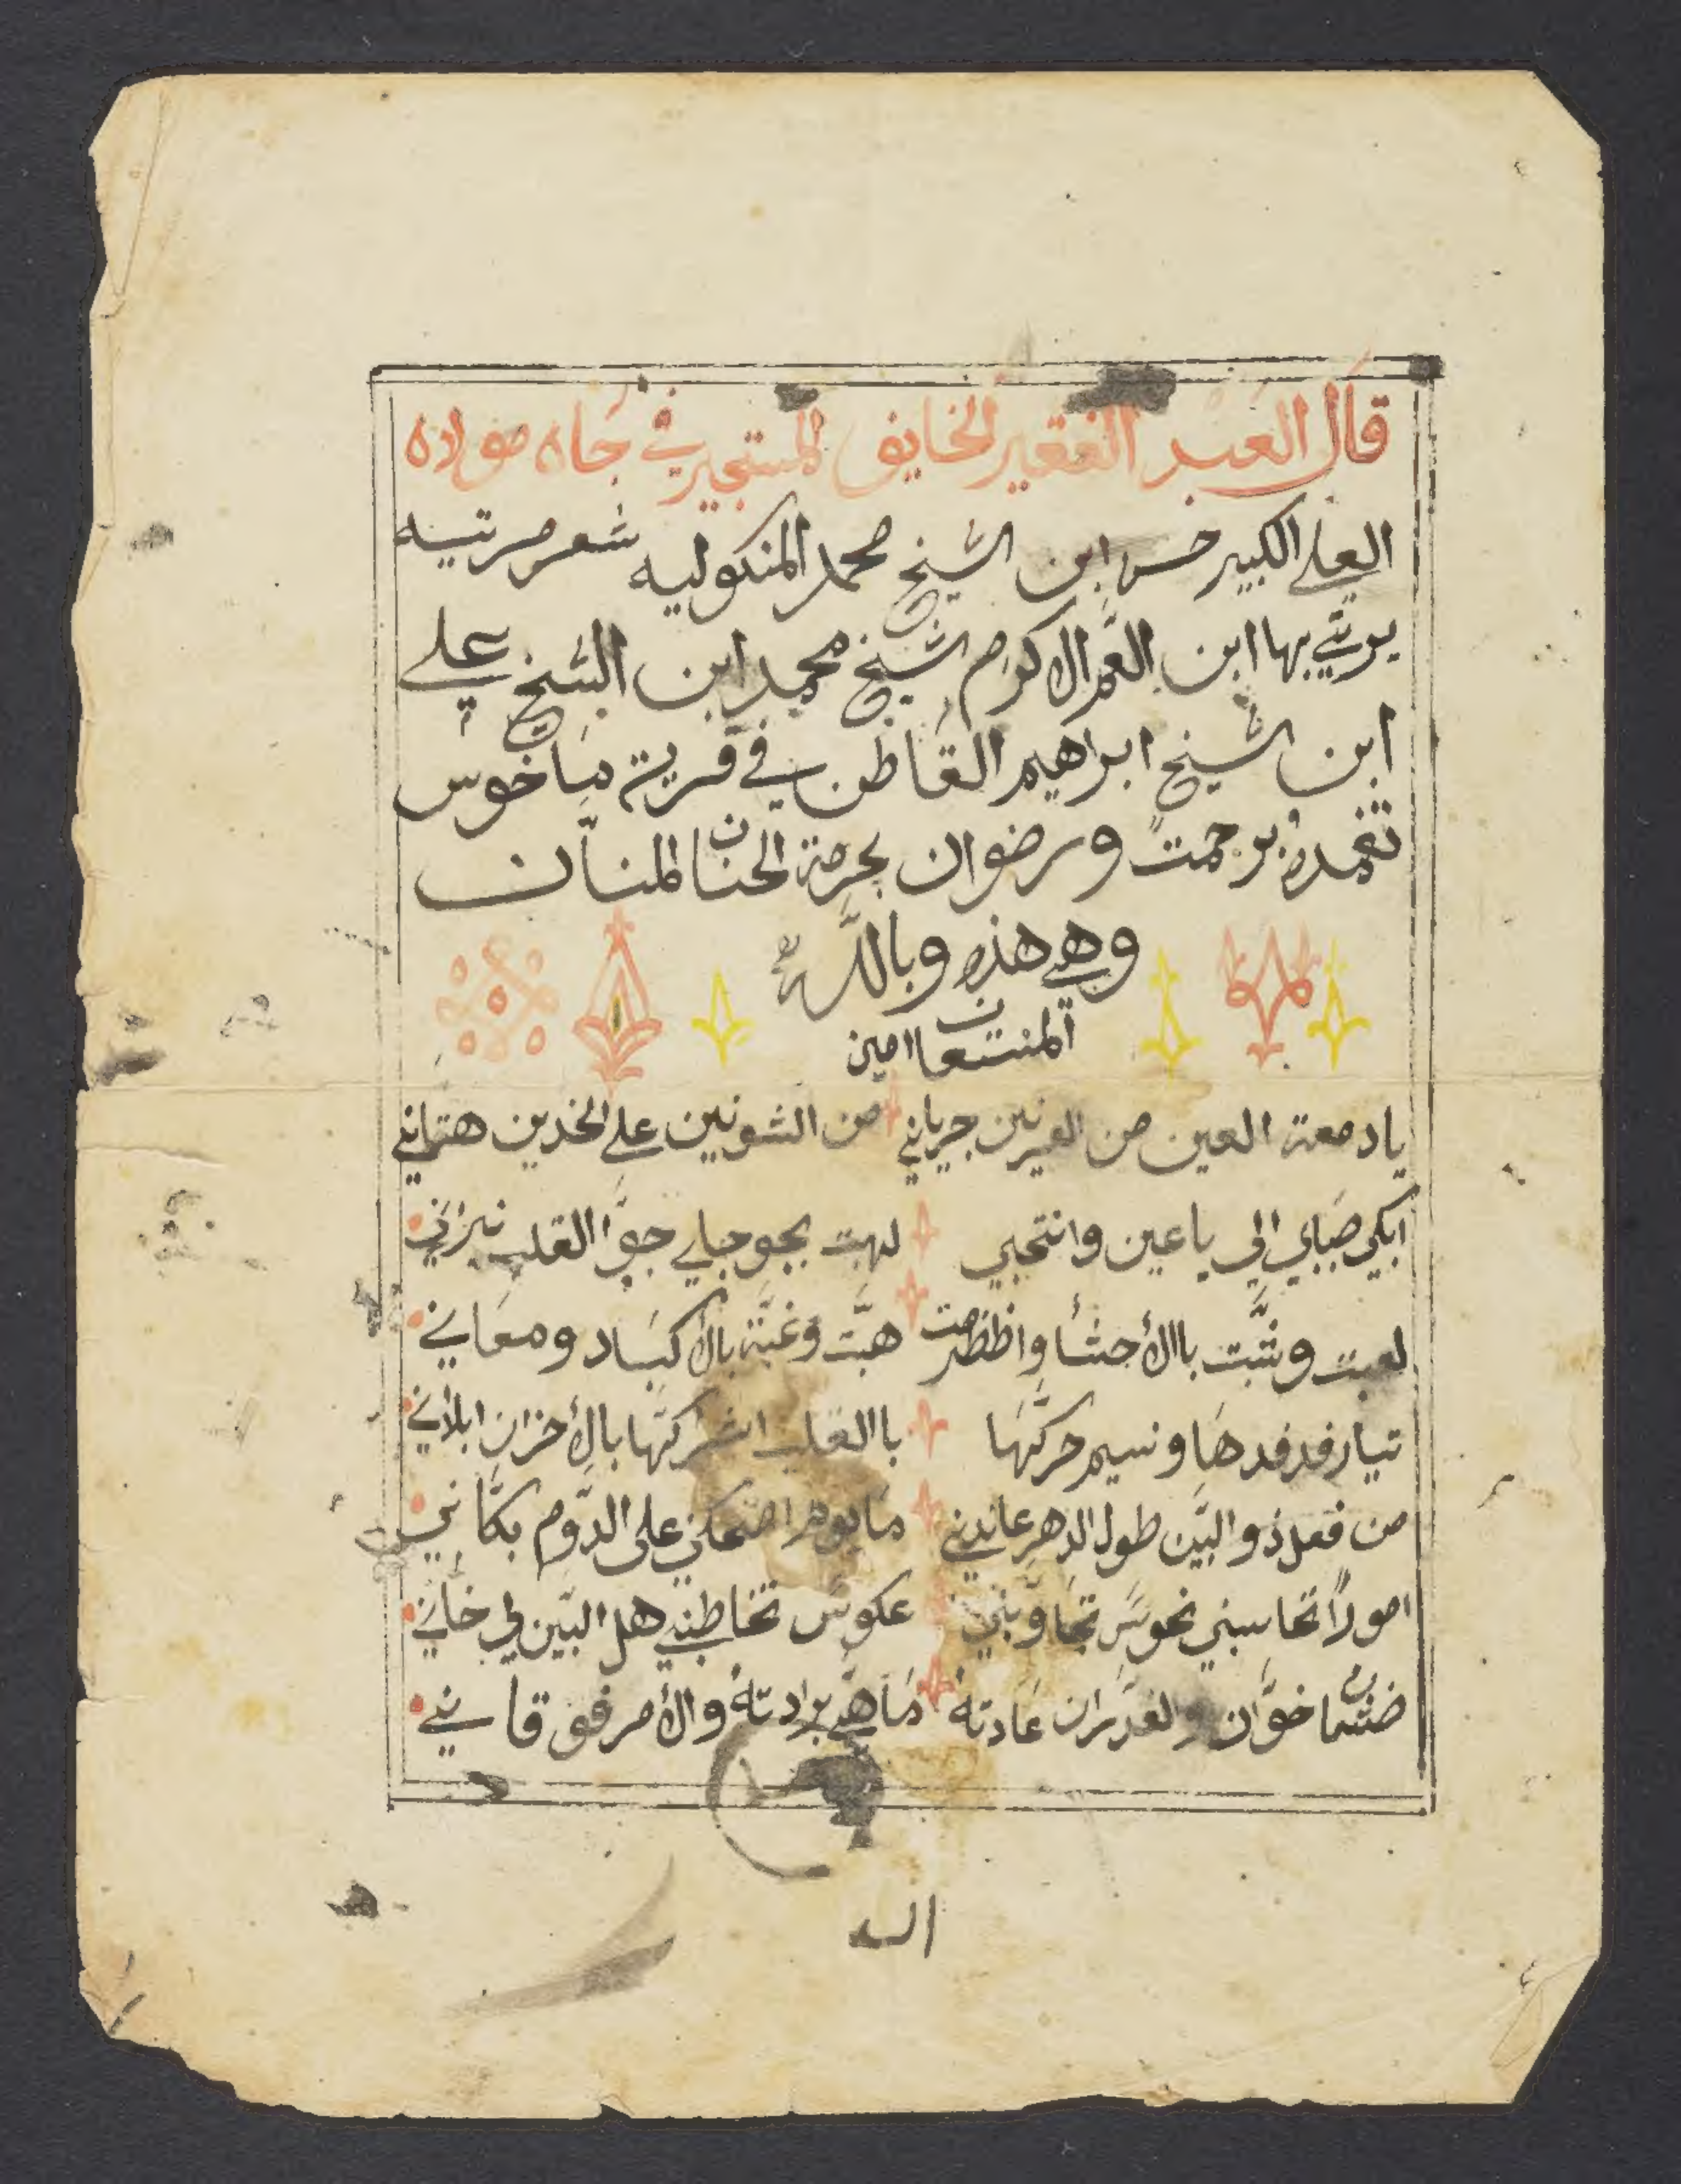 قال العبد الفقير الخايف المستجير في جاه مولاه
العلي الكبير حسن ابن الشيخ محمد المنكوليه شعر مرتيه
يرتي بها ابن العم الاكرم الشيخ محمد ابن الشيخ علي
ابن الشيخ ابراهيم القاطن في قرية ماخوس
تغمده برحمت ورضوان بحرمة الحنان المنان
وهي هذه وبالله
المستعان امين
يا دمعة العين من العيرنين جرياني من الشونين على الخدين هتاني
ابكي صبابي الي يا عين وانتحبي لهبت بجو جباي جوا القلب نيراني
لعبت وشبت باالأحشا واظظرمت هبت وغبة بالأكباد ومعاني
تيار فدفدها ونسيم حركتها باالقلب اشركتها بالأحزان ابلاني
من فعل ذو البين طول الدهر عاندني ما يوم اضحكني على الدوم بكاني
امورا تحاسبني نحوس تجاوبني عكوس تخاطبني هل البين لي خاني
خوان والغدران عادته ما هي برادته والأمر فوق قاني
الـ